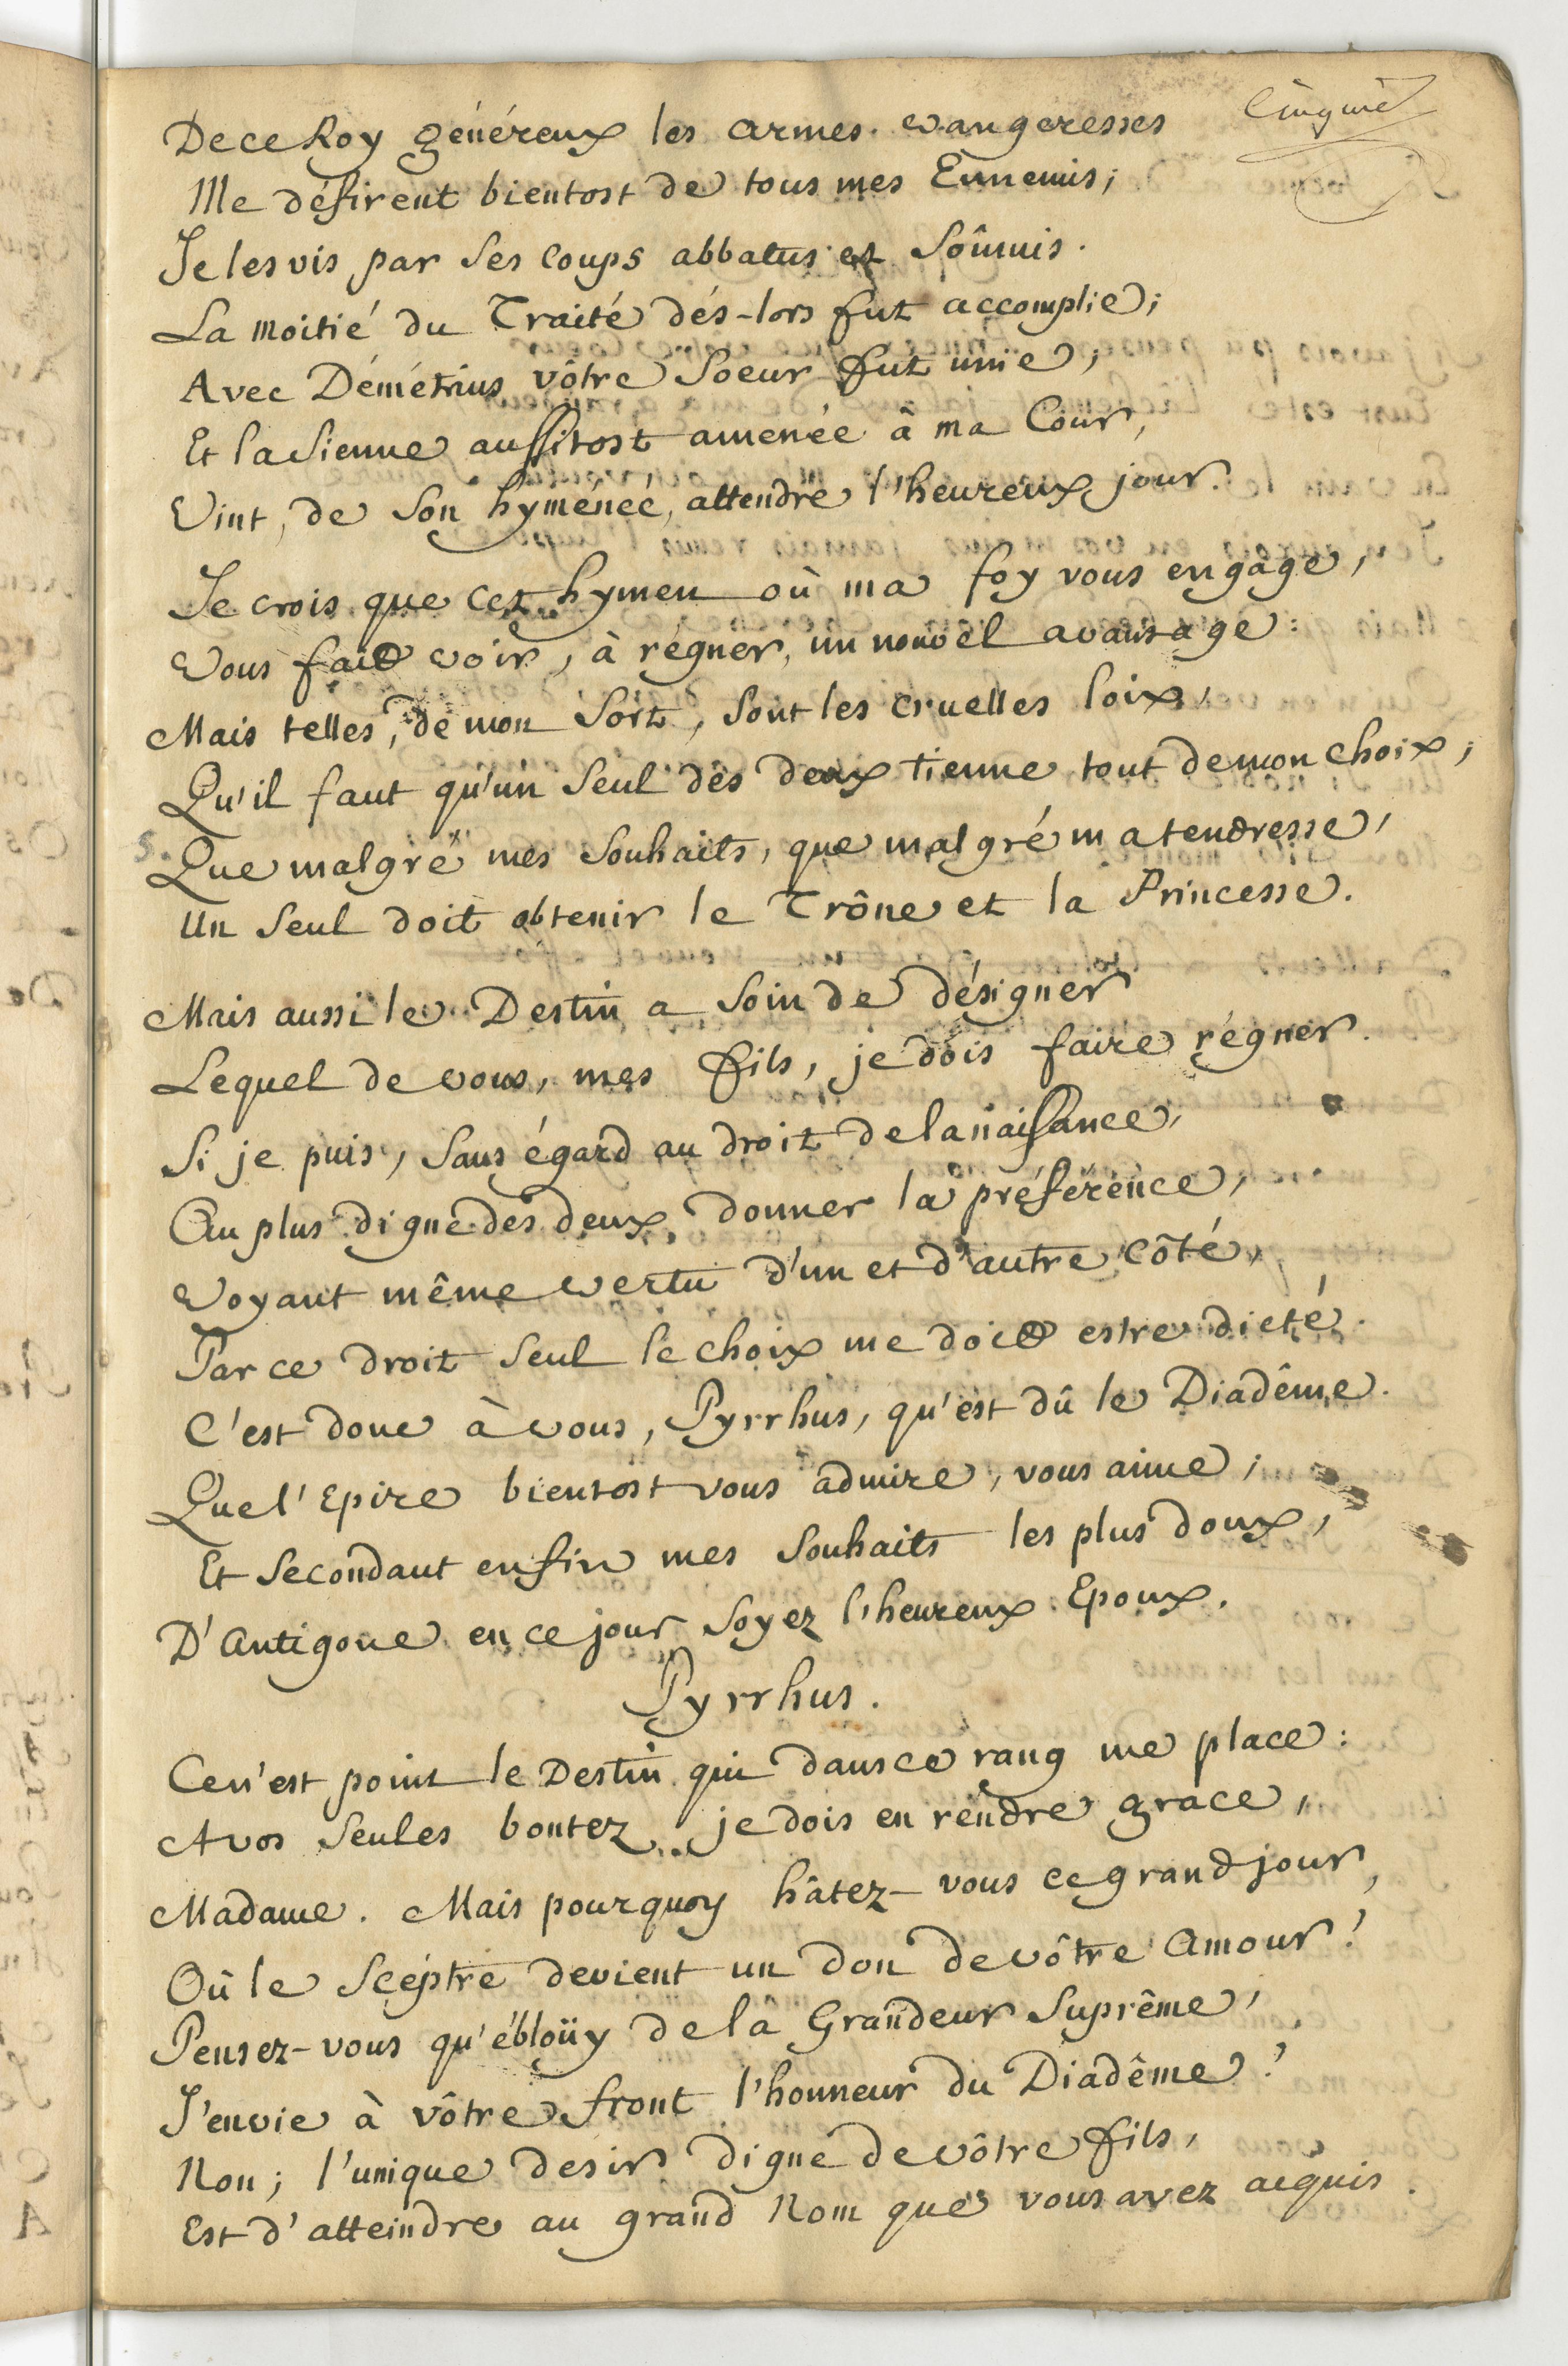 Cinquie
De ce Roy généreux les armes vangeresses
Me défirent bientost de tous mes Ennemis;
Je les vis par Ses coups abbatus et Soûmis.
La moitié du Traité dés-lors fut accomplie;
Avec Démétrius vôtre Soeur fut unie;
Et la Sienne aussitost amenée à ma Cour,
Vint, de Son hyménée, attendre l'heureux jour.
Je crois que cet hymen où ma foy vous engage,
Vous fait voir, à régner, un nouvel avantage:
Mais telles, de mon Sort, Sont les cruelles loix,
Qu'il faut qu'un Seul des deux tienne tout de mon choix;
Que malgré mes Souhaits, que malgré ma tendresse,
Un Seul doit obtenir le Trône et la Princesse.
Mais aussi le Destin a Soin de désigner
Lequel de vous, mes fils, je dois faire régner.
Si je puis, Sans égard au droit de la naissance,
Au plus digne des deux, donner la préférence,
Voyant même vertu d'un et d'autre côté,
Par ce droit Seul le choix me doit estre dicté.
C'est donc à vous, Pyrrhus, qu'est dû le Diadême.
Que l'Epire bientost vous admire, vous aime;
Et Secondant enfin mes Souhaits les plus doux,
D'Antigone en ce jour Soyez l'heureux Epoux.
Pyrrhus.
Ce n'est point le Destin qui dans ce rang me place:
A vos Seules bontez je dois en rendre grace,
Madame. Mais pourquoy hâtez-vous ce grand jour,
Où le Sceptre devient un don de vôtre Amour?
Pensez-vous qu'éblouÿ de la Grandeur Suprême,
J'envie à vôtre front l'honneur du Diadême?
Non; l'unique desir digne de vôtre fils,
Est d'atteindre au grand Nom que vous avez acquis.